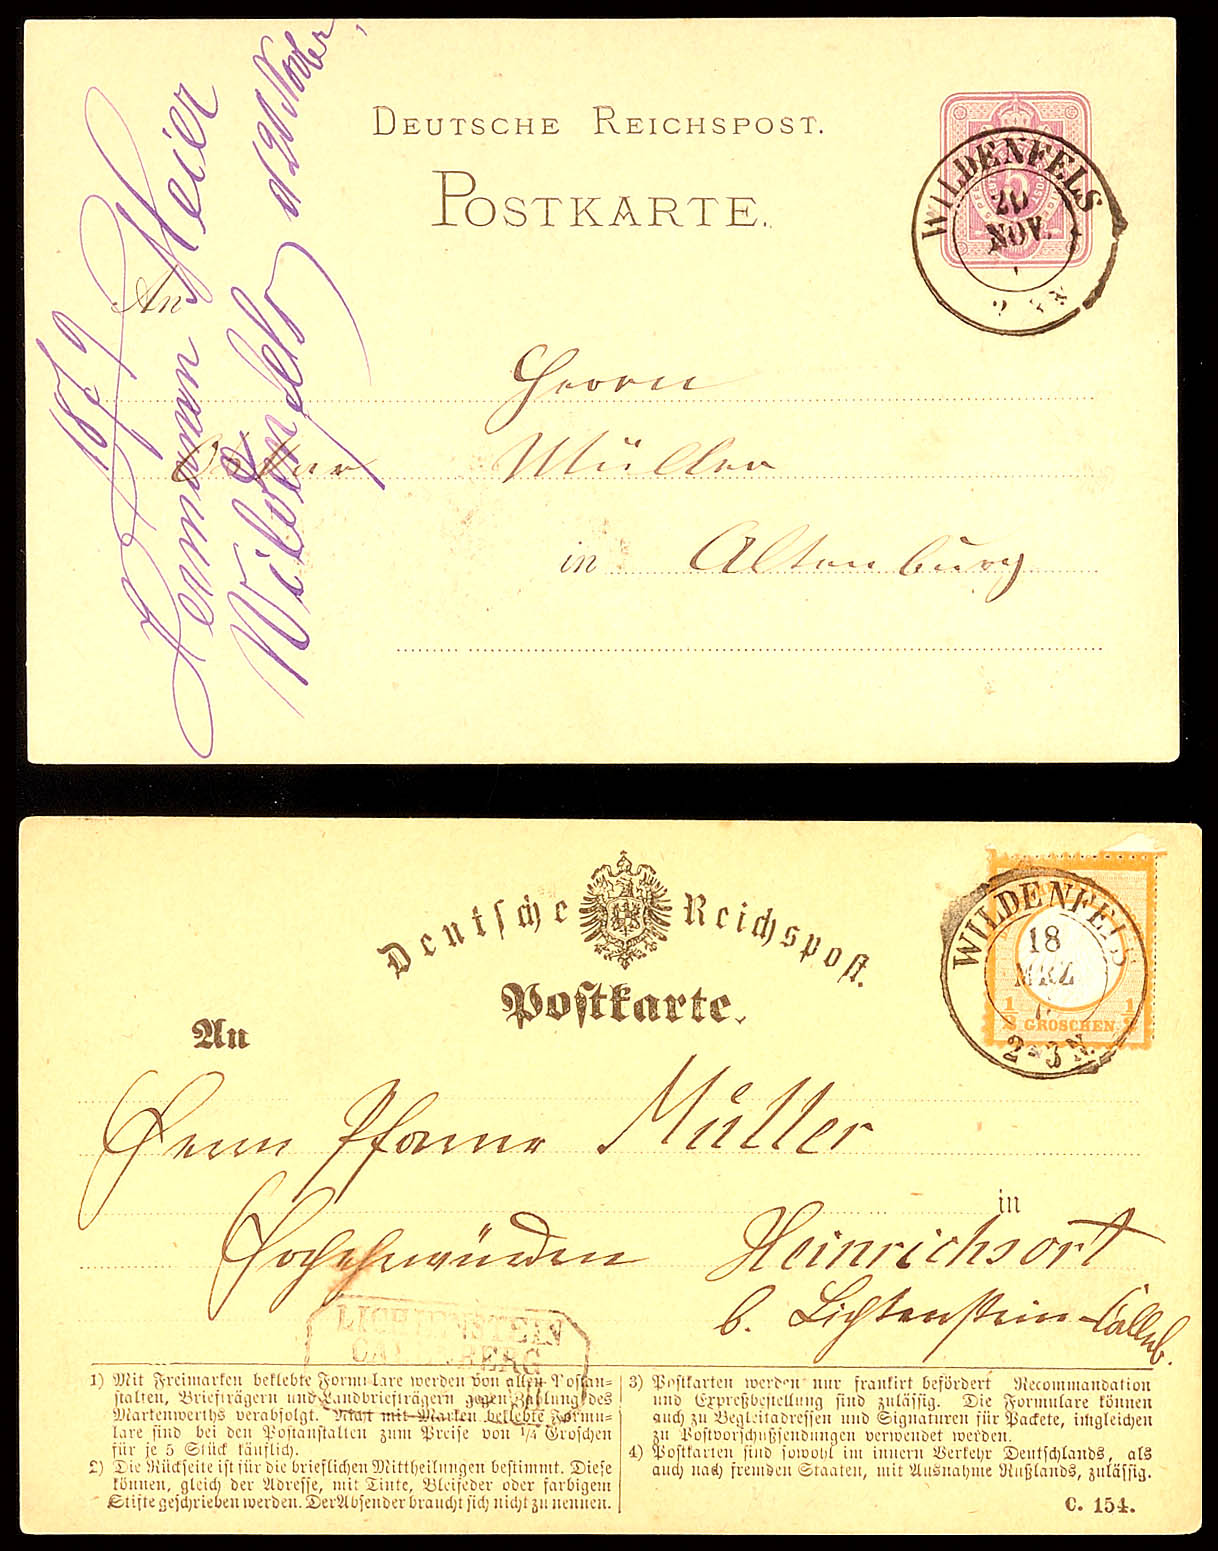 DEUTSCHE REICHSPOST.
POSTKARTE.
An
Herrn
Oskar Müller
in Altenburg
1879
Hermann Meier
Wildenfels
d 20 Novbr
WILDENFELS
20
NOV.
Deutsche Reichspost.
Postkarte.
An
WILDENFELS
18
MRZ
2-3 N.
1/2 GROSCHEN 1/2
Herrn Pfarrer Müller
in
Hochehrwürden Heinrichsort
b. Lichtenstein-Callnb.
LICHTENSTEIN
CALLNBERG
1) Mit Freimarken beklebte Formulare werden von allen Postan-
stalten, Briefträgern und Landbriefträgern gegen Zahlung des
Markenwerths verabfolgt. Nicht mit Marken beklebte Formu-
lare sind bei den Postanstalten zum Preise von 1/4 Groschen
für je 5 Stück käuflich.
2) Die Rückseite ist für die brieflichen Mittheilungen bestimmt. Diese
können, gleich der Adresse, mit Tinte, Bleifeder oder farbigem
Stifte geschrieben werden. Der Absender braucht sich nicht zu nennen.
3) Postkarten werden nur frankirt befördert Recommandation
und Expreßbestellung sind zulässig. Die Formulare können
auch zu Begleitadressen und Signaturen für Packete, imgleichen
zu Postvorschußsendungen verwendet werden.
4) Postkarten sind sowohl im innern Verkehr Deutschlands, als
auch nach fremden Staaten, mit Ausnahme Rußlands, zulässig.
C. 154.